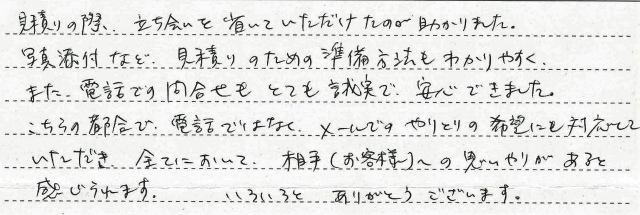 見積りの際、立ち会いを省いていただけたのが助かりました。
写真添付など、見積りのための準備方法もわかりやすく、
また、電話での問合せも とても誠実で、安心できました。
こちらの都合で、電話ではなく、メールでの やりとりの希望にも対応して
いただき、全てにおいて、相手(お客様)への思いやりがあると
感じられます。 いろいろと ありがとうございます。